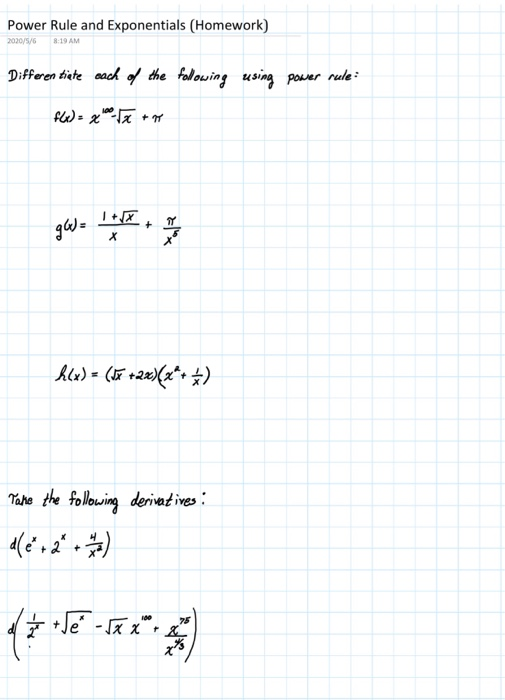 Power Rule and Exponentials (Homework)
2020/5/6 8:19 AM
Differentiate each of the following using power rule:
f(x) = x^100 - √x + π
g(x) = (1 + √x)/x + π/x^5
h(x) = (√x + 2x)(x^2 + 1/x)
Take the following derivatives:
d(e^x + 2^x + 4/x^2)
d(1/2^x + √e^x - √x x^100 + x^75/x^4/3)